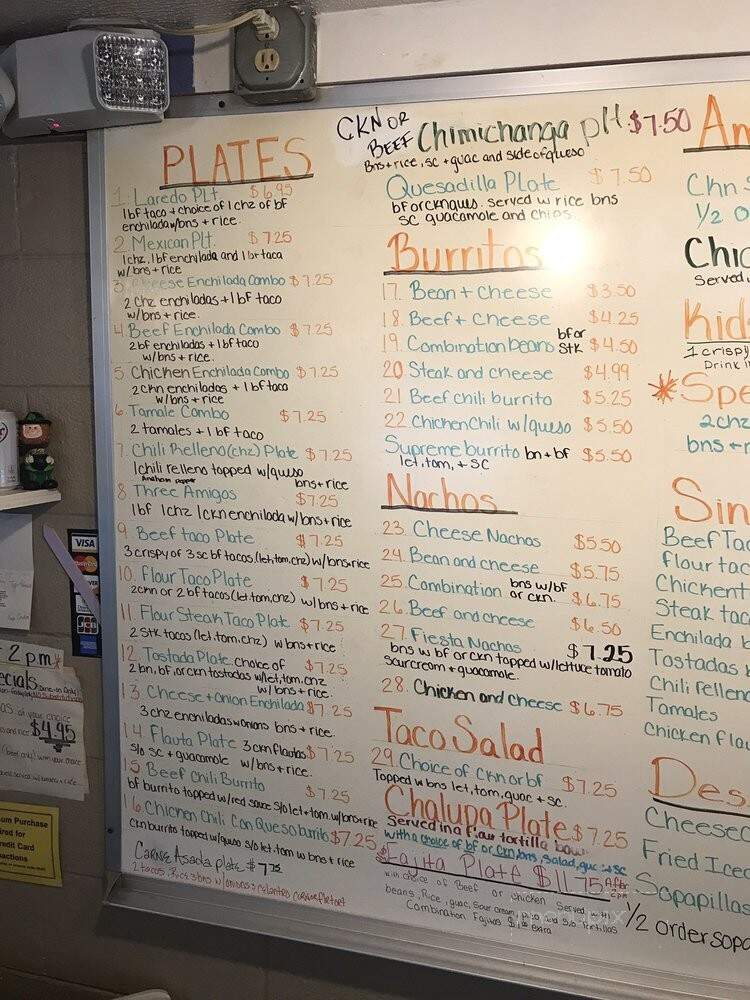 PLATES
1. Laredo Plt $6.95
1bf taco + choice of 1 chz of bf
enchilada w/bns + rice.
2 Mexican Plt. $7.25
1chz, 1bf enchilada and 1 bf taca
w/ bns + rice
3. Cheese Enchilada Combo $7.25
2 chz enchiladas + 1 bf taco
w/bns + rice.
4. Beef Enchilada Combo $7.25
2 bf enchiladas + 1 bf taco
w/bns + rice.
5. Chicken Enchilada Combo $7.25
2 ckn enchiladas + 1 bf taco
w/bns + rice
6. Tamale Combo $7.25
2 tamales + 1 bf taco
7. Chili Relleno (chz) Plate $7.25
1 chili relleno topped w/queso
Anaheim pepper bns + rice
8. Three Amigos $7.25
1bf 1chz 1ckn enchilada w/bns + rice
9. Beef taco Plate $7.25
3 crispy of 3 sc bf tacos, (let, tom, chz) w/bns + rice
10. Flour Taco Plate $7.25
2ckn or 2 bf tacos (let, tom, chz) w/ bns + rice
11 Flour Steak Taco Plate $7.25
2 Stk tacos (let, tom, chz) w/ bns + rice
12. Tostada Plate choice of $7.25
2 bn, bf, or ckn tostadas w/let, tom, chz
w/ bns + rice.
13. Cheese + onion Enchilada $7.25
3 chz enchiladas w onions bns + rice.
14 Flauta Plate 3 ckn flautas $7.25
s/o sc + guacamole w/ bns + rice.
15. Beef Chili Burrito $7.25
bf burrito topped w/red sauce s/o let + tom. w/bns + rice
16 Chicken Chili Con Queso burrito $7.25
ckn burrito topped w/queso s/o let, tom w bns + rice
Carne Asada plate $7.75
2 tacos, Rice + bns w/onions + cilantro
CKN OR
BEEF Chimichanga plt $7.50
Bns + rice, sc + guac and side of queso
Quesadilla Plate $7.50
bf or ckn ques. served w rice bns
SC guacamole and chips.
Burritos
17. Bean + Cheese $3.50
18. Beef + Cheese $4.25
19. Combination beans bf or stk $4.50
20 Steak and cheese $4.99
21 Beef chili burrito $5.25
22 Chicken Chili w/queso $5.50
Supreme burrito bn + bf $5.50
let, tom, + SC
Nachos
23. Cheese Nachos $5.50
24. Bean and cheese $5.75
25. Combination bns w/bf or ckn. $6.75
26. Beef and cheese $6.50
27. Fiesta Nachos $7.25
bns w bf or ckn topped w/lettuce tomato
sour cream + guacamole.
28. Chicken and cheese $6.75
Taco Salad
29. Choice of Ckn or bf $7.25
Topped w bns let, tom, guac + sc.
Chalupa Plate $7.25
Served in a flour tortilla bowl
with a choice of bf or ckn, bns, salad, guc + sc
Fajita Plate $11.75 After 2pm
with choice of Beef or chicken Served with
beans, Rice, guac, sour cream, pico and s/o Tortillas
Combination Fajitas extra
An
Ckn
1/2 o
Chic
Served
Kid
1 crispy
Drink i
Spe
2chz
bns + r
Sin
Beef Tac
flour tac
Chicken t
Steak tac
Enchilada b
Tostadas b
Chili rellen
Tamales
chicken flau
Des
Cheesec
Fried Icec
Sopapillas
1/2 order sopa
VISA
MasterCard
JCB
2 pm
cials
as of your choice
$4.95
um Purchase
ired for
redit Card
actions